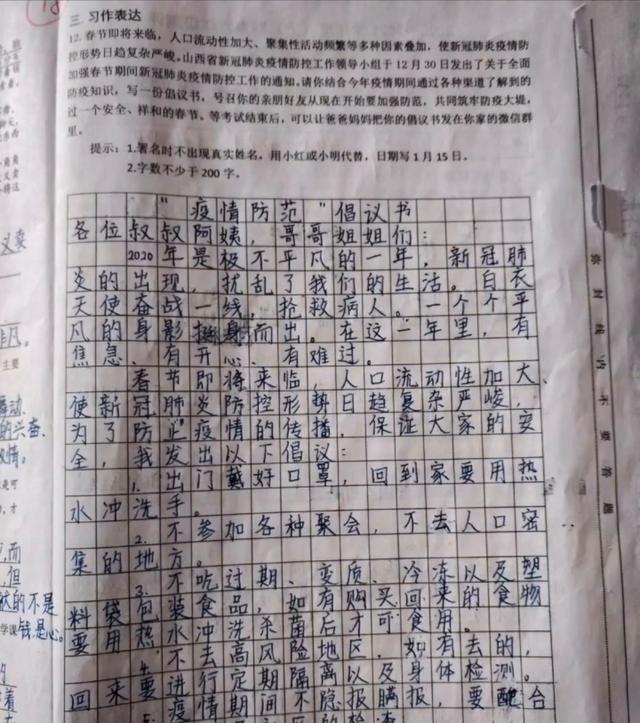 三. 习作表达
12. 春节即将来临，人口流动性加大、聚集性活动频繁等多种因素叠加，使新冠肺炎疫情防
控形势日趋复杂严峻。山西省新冠肺炎疫情防控工作领导小组于 12 月 30 日发出了关于全面
加强春节期间新冠肺炎疫情防控工作的通知。请你结合今年疫情期间通过各种渠道了解到的
防疫知识，写一份倡议书，号召你的亲朋好友从现在开始要加强防范，共同筑牢防疫大堤，
过一个安全、祥和的春节。等考试结束后，可以让爸爸妈妈把你的倡议书发在你家的微信群
里。
提示：1.署名时不出现真实姓名。用小红或小明代替，日期写 1 月 15 日。
2.字数不少于 200 字。
"疫情防范"倡议书
各位叔叔阿姨，哥哥姐姐们：
2020年是极不平凡的一年，新冠肺
炎的出现，扰乱了我们的生活。白衣
天使奋战一线，抢救病人。一个个平
凡的身影挺身而出。在这一年里，有
焦急、有开心、有难过。
春节即将来临，人口流动性加大、
使新冠肺炎防控形势日趋复杂严峻，
为了防止疫情的传播，保证大家的安
全，我发出以下倡议：
1. 出门戴好口罩，回到家要用热
水冲洗手。
2. 不参加各种聚会，不去人口密
集的地方。
3. 不吃过期、变质、冷冻以及塑
料袋包装食品，如有购买回来的食物
要用热水冲洗杀菌后才可食用。
4. 不去高风险地区，如有去的，
回来要进行定期隔离以及身体检测。
5. 疫情期间不隐报瞒报，要配合
的检查
弥 封 线 内 不 要 答 题
义卖
非凡，
主要
舞动、
的兴奋、
激情。
,而
,但
然的不是
学课 钱是心。
的